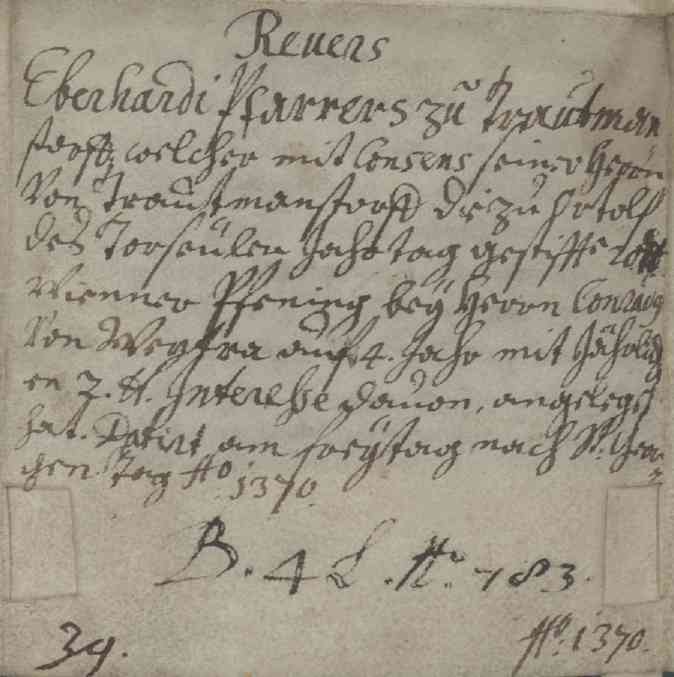 Reuers
Eberhardi Pfarrers zu Trautman
storff, welcher mit Consens seiner Herrn
Von Trautmanstorff die zu Ortolf
des Torseulen Jahrtag gestifften
Wienner Pfening bey Herrn Conrad
Von Weytra auf 4. Jahr mit Jährlich
en 7. tt. Interesse dauon, angelegt
hat. Datirt am freytag nach St:
gen Tag Ao 1370
B. 4 L. No. 783.
39. Ao. 1370.